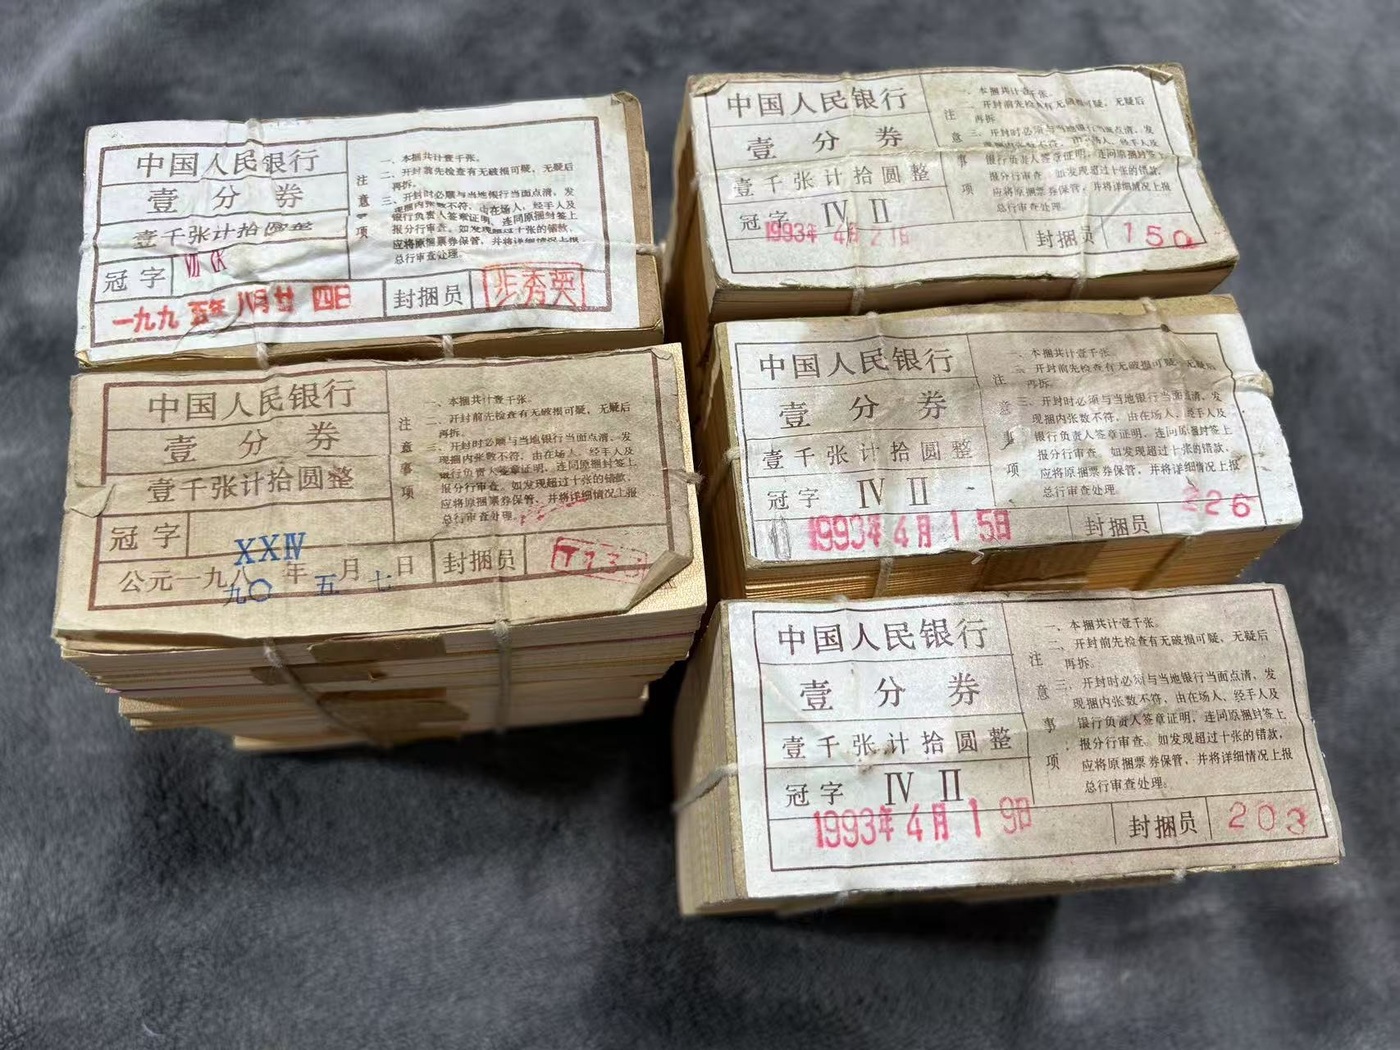 中国人民银行
壹分券
壹千张计拾圆整
冠字
一九九五年八月廿四日
封捆员
注意事项
一、本捆共计壹千张。
二、开封前先检查有无破损可疑，无疑后
再拆。
三、开封时必须与当地银行当面点清，发
现捆内张数不符，由在场人、经手人及
银行负责人签章证明，连同原捆封签上
报分行审查。如发现超过十张的错款，
应将原捆票券保管，并将详细情况上报
总行审查处理。
中国人民银行
壹分券
壹千张计拾圆整
冠字 XXⅣ
公元一九八 年 月 日
九〇 五 七
封捆员
注意事项
一、本捆共计壹千张。
二、开封前先检查有无破损可疑，无疑后
再拆。
三、开封时必须与当地银行当面点清，发
现捆内张数不符，由在场人、经手人及
银行负责人签章证明，连同原捆封签上
报分行审查。如发现超过十张的错款，
应将原捆票券保管，并将详细情况上报
总行审查处理。
中国人民银行
壹分券
壹千张计拾圆整
冠字 Ⅳ Ⅱ
1993年4月
封捆员 150
注意事项
一、本捆共计壹千张。
二、开封前先检查有无破损可疑，无疑后
再拆。
三、开封时必须与当地银行当面点清，发
现捆内张数不符，由在场人、经手人及
银行负责人签章证明，连同原捆封签上
报分行审查。如发现超过十张的错款，
应将原捆票券保管，并将详细情况上报
总行审查处理。
中国人民银行
壹分券
壹千张计拾圆整
冠字 Ⅳ Ⅱ
1993年4月15日
封捆员 226
注意事项
一、本捆共计壹千张。
二、开封前先检查有无破损可疑，无疑后
再拆。
三、开封时必须与当地银行当面点清，发
现捆内张数不符，由在场人、经手人及
银行负责人签章证明，连同原捆封签上
报分行审查。如发现超过十张的错款，
应将原捆票券保管，并将详细情况上报
总行审查处理。
中国人民银行
壹分券
壹千张计拾圆整
冠字 Ⅳ Ⅱ
1993年4月19日
封捆员 203
注意事项
一、本捆共计壹千张。
二、开封前先检查有无破损可疑，无疑后
再拆。
三、开封时必须与当地银行当面点清，发
现捆内张数不符，由在场人、经手人及
银行负责人签章证明，连同原捆封签上
报分行审查。如发现超过十张的错款，
应将原捆票券保管，并将详细情况上报
总行审查处理。